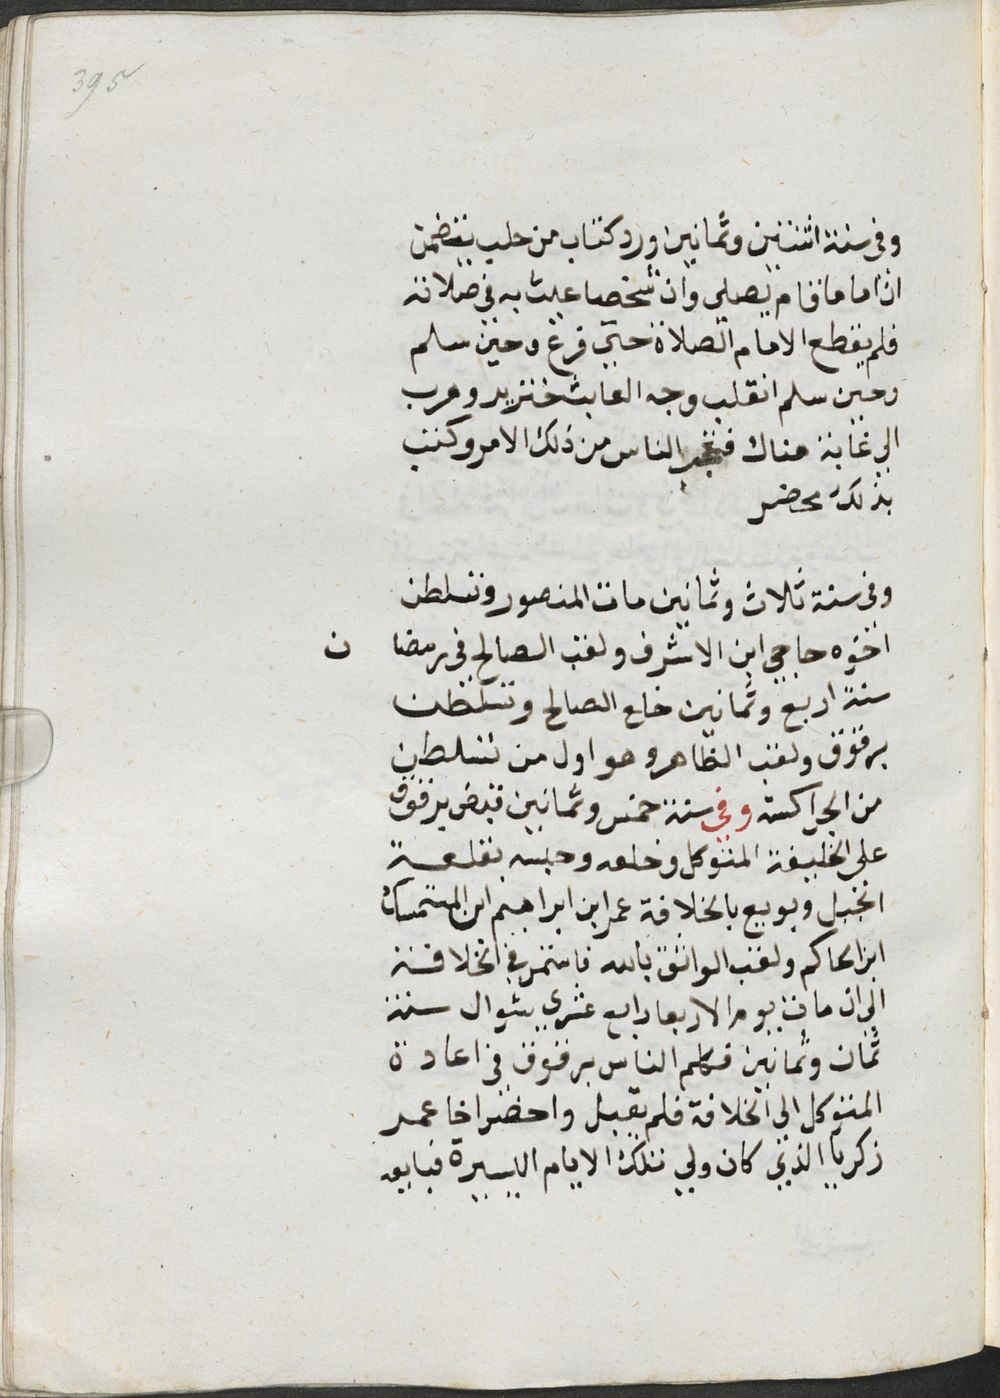 395
وفى سنة اثنتين وثمانين ورد كتاب من حلب يتضمن
ان اماما قام يصلى وان شخصا عبث به فى صلاته
فلم يقطع الامام الصلاة حتى فرغ وحين سلم
وحين سلم انقلب وجه العابث خنزير وهرب
الى غابة هناك فعجب الناس من ذلك الامر وكتب
بذلك محضر
وفى سنة ثلاث وثمانين مات المنصور وتسلطن
اخوه حاجي ابن الاشرف ولقب الصالح في رمضا ن
سنة اربع وثمانين خلع الصالح وتسلطن
برقوق ولقب الظاهر وهو اول من تسلطن
من الجراكسة وفي سنة خمس وثمانين قبض برقوق
على الخليفة المتوكل وخلعه وحبسه بقلعة
الجبل وبويع بالخلافة عمر ابن ابراهيم ابن المستمسك
ابن الحاكم ولقب الواثق بالله فاستمر في الخلافة
الى ان مات يوم الاربعا رابع عشري شوال سنة
ثمان وثمانين فكلم الناس برقوق في اعادة
المتوكل الى الخلافة فلم يقبل واحضر اخا عمر
زكريا الذي كان ولي تلك الايام اليسيرة فبايعه